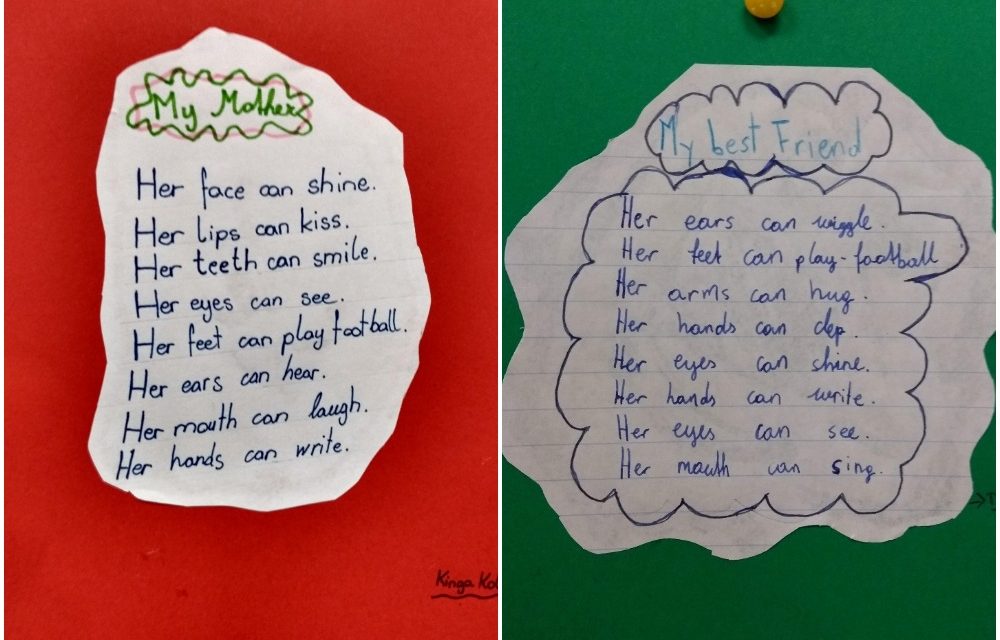 My Mother
Her face can shine.
Her lips can kiss.
Her teeth can smile.
Her eyes can see.
Her feet can play football.
Her ears can hear.
Her mouth can laugh.
Her hands can write.
Kinga
My best Friend
Her ears can wiggle.
Her feet can play-football
Her arms can hug.
Her hands can clep.
Her eyes can shine.
Her hands can write.
Her eyes can see.
Her mouth can sing.